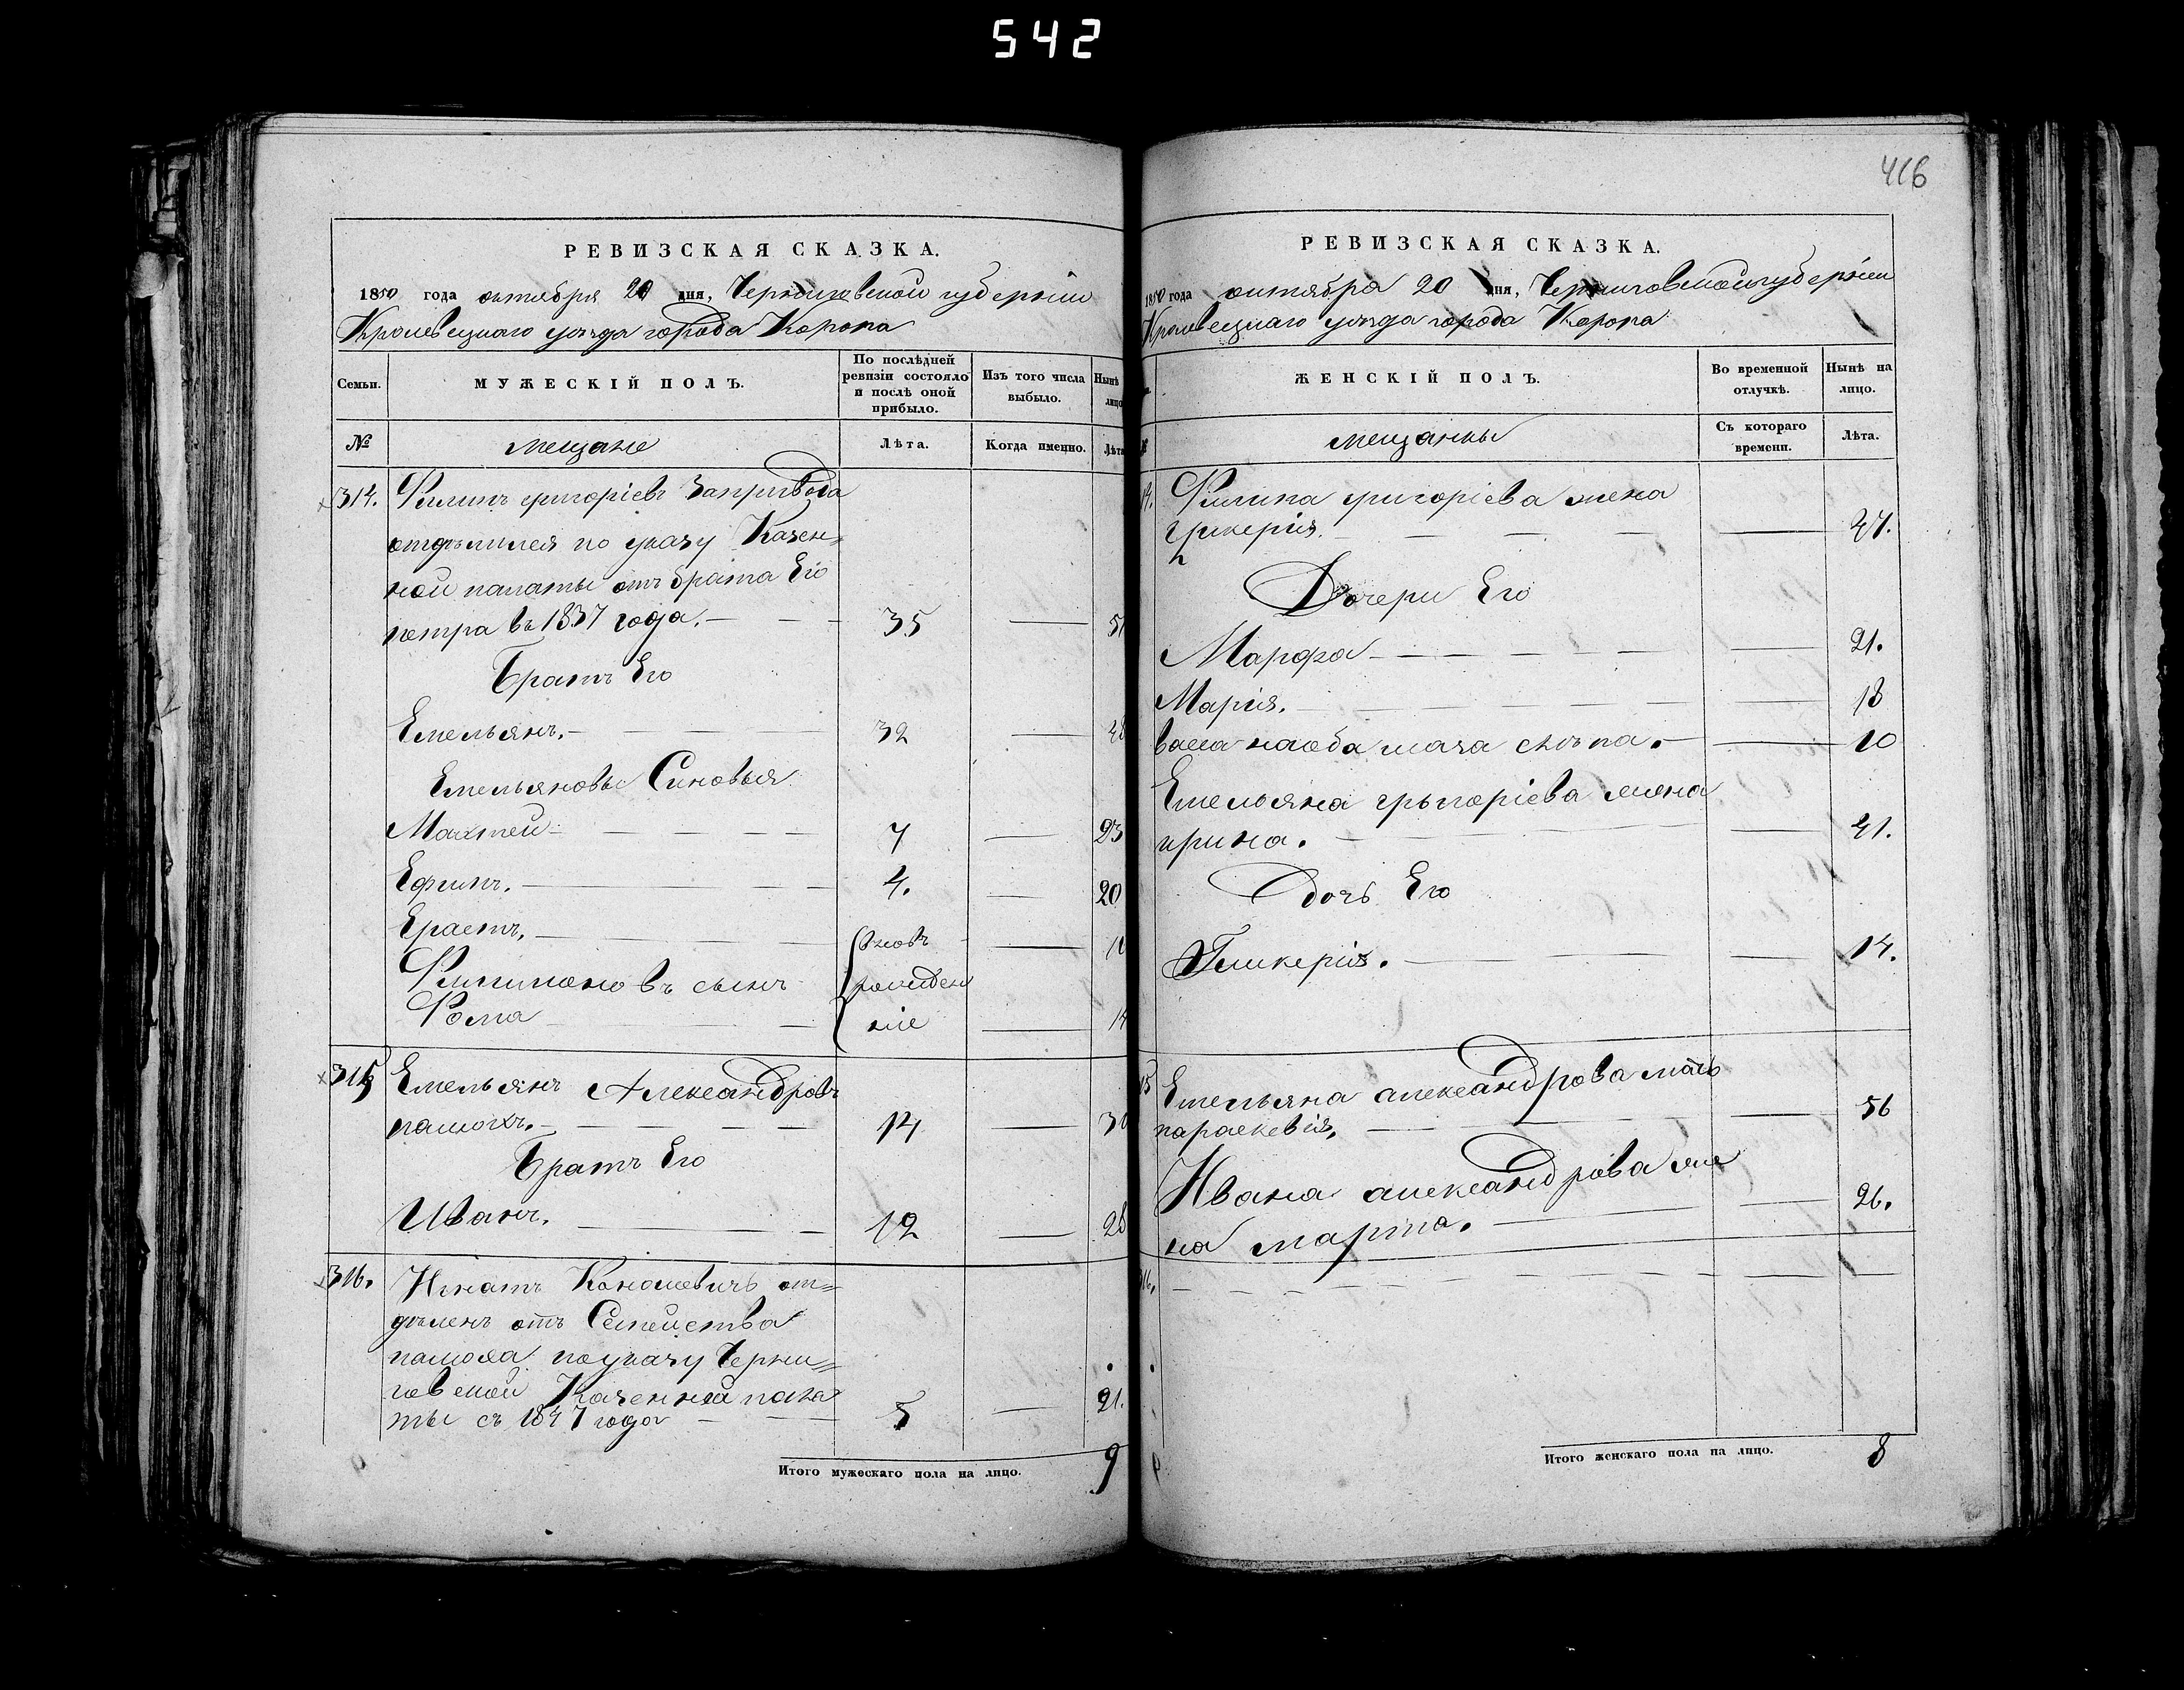 542
416
РЕВИЗСКАЯ СКАЗКА.
1850 года октября 20 дня, Черниговской губернии
Кролевецкаго уезда города Коропа
Семьи.
МУЖЕСКІЙ ПОЛЪ.
По послѣдней ревизіи состояло и послѣ оной прибыло.
Изъ того числа выбыло.
Нынѣ лицо
№
мещане
Лѣта.
Когда именно.
Лѣта
314. Филипъ григоріевъ Запривода
отделился по указу Казен=
ной палаты отъ брата Его
петра въ 1837 года. 35 51
Братъ Его
Емельянъ. 32 48
Емельяновы Синовья
Матвей 7 23
Ефимъ. 4. 20
Ерастъ. вновь 10
Филипоновъ сынъ рожден
Фома ніе 14
315 Емельянъ Александровъ
14 30
Братъ Его
Иванъ. 12 28
316. Игнатъ Кононевичъ от=
деленъ отъ Семейства
по указу Черни=
говской Казенной пала
ты съ 1847 года 5 21.
Итого мужескаго пола на лицо. 9
РЕВИЗСКАЯ СКАЗКА.
1850 года октября 20 дня, Черниговской губерніи
Кролевецкаго уезда города Коропа
ЖЕНСКІЙ ПОЛЪ.
Во временной отлучкѣ.
Нынѣ на лицо.
мещанкы
Съ котораго времени.
Лѣта.
14. Филипа григоріева жена
гликерия. 47.
Дочери Его
Марфа 21.
Мария. 18
10
Емельяна грыгоріева жена
ирина. 41.
дочь Его
Гликерия. 14.
15 Емельяна александрова мать
параскевия. 56
Ивана александрова же
на марта. 26.
16.
Итого женскаго пола на лицо. 8